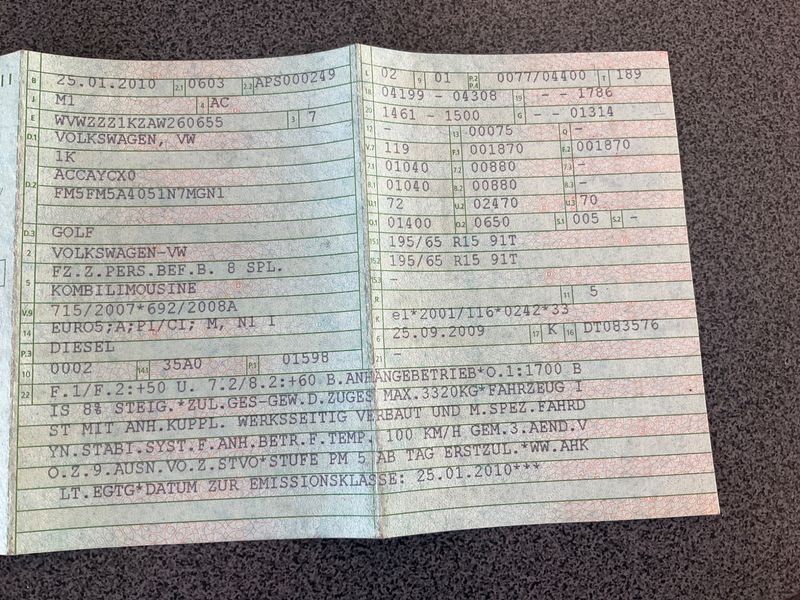 B 25.01.2010 2.1 0603 2.2 APS000249
J M1 4 AC
E WVWZZZ1KZAW260655 3 7
D.1 VOLKSWAGEN, VW
1K
D.2 ACCAYCX0
FM5FM5A4051N7MGN1
D.3 GOLF
2 VOLKSWAGEN-VW
5 FZ.Z.PERS.BEF.B. 8 SPL.
KOMBILIMOUSINE
V.9 715/2007*692/2008A
14 EURO5;A;PI/CI; M, N1 I
P.3 DIESEL
10 0002 14.1 35A0 P.1 01598
L 02 9 01 P.2 P.4 0077/04400 T 189
18 04199 - 04308 19 - - 1786
20 1461 - 1500 G - - 01314
12 - 13 00075 Q -
V.7 119 F.1 001870 F.2 001870
7.1 01040 7.2 00880 7.3 -
8.1 01040 8.2 00880 8.3 -
U.1 72 U.2 02470 U.3 70
O.1 01400 O.2 0650 S.1 005 S.2 -
15.1 195/65 R15 91T
15.2 195/65 R15 91T
15.3 -
R 11 5
K e1*2001/116*0242*33
6 25.09.2009 17 K 16 DT083576
21 -
22 F.1/F.2:+50 U. 7.2/8.2:+60 B.ANHANGEBETRIEB*O.1:1700 B
IS 8% STEIG.*ZUL.GES-GEW.D.ZUGES MAX.3320KG*FAHRZEUG I
ST MIT ANH.KUPPL. WERKSSEITIG VERBAUT UND M.SPEZ.FAHRD
YN.STABI.SYST.F.ANH.BETR.F.TEMP. 100 KM/H GEM.3.AEND.V
O.Z.9.AUSN.VO.Z.STVO*STUFE PM 5 AB TAG ERSTZUL.*WW.AHK
LT.EGTG*DATUM ZUR EMISSIONSKLASSE: 25.01.2010***